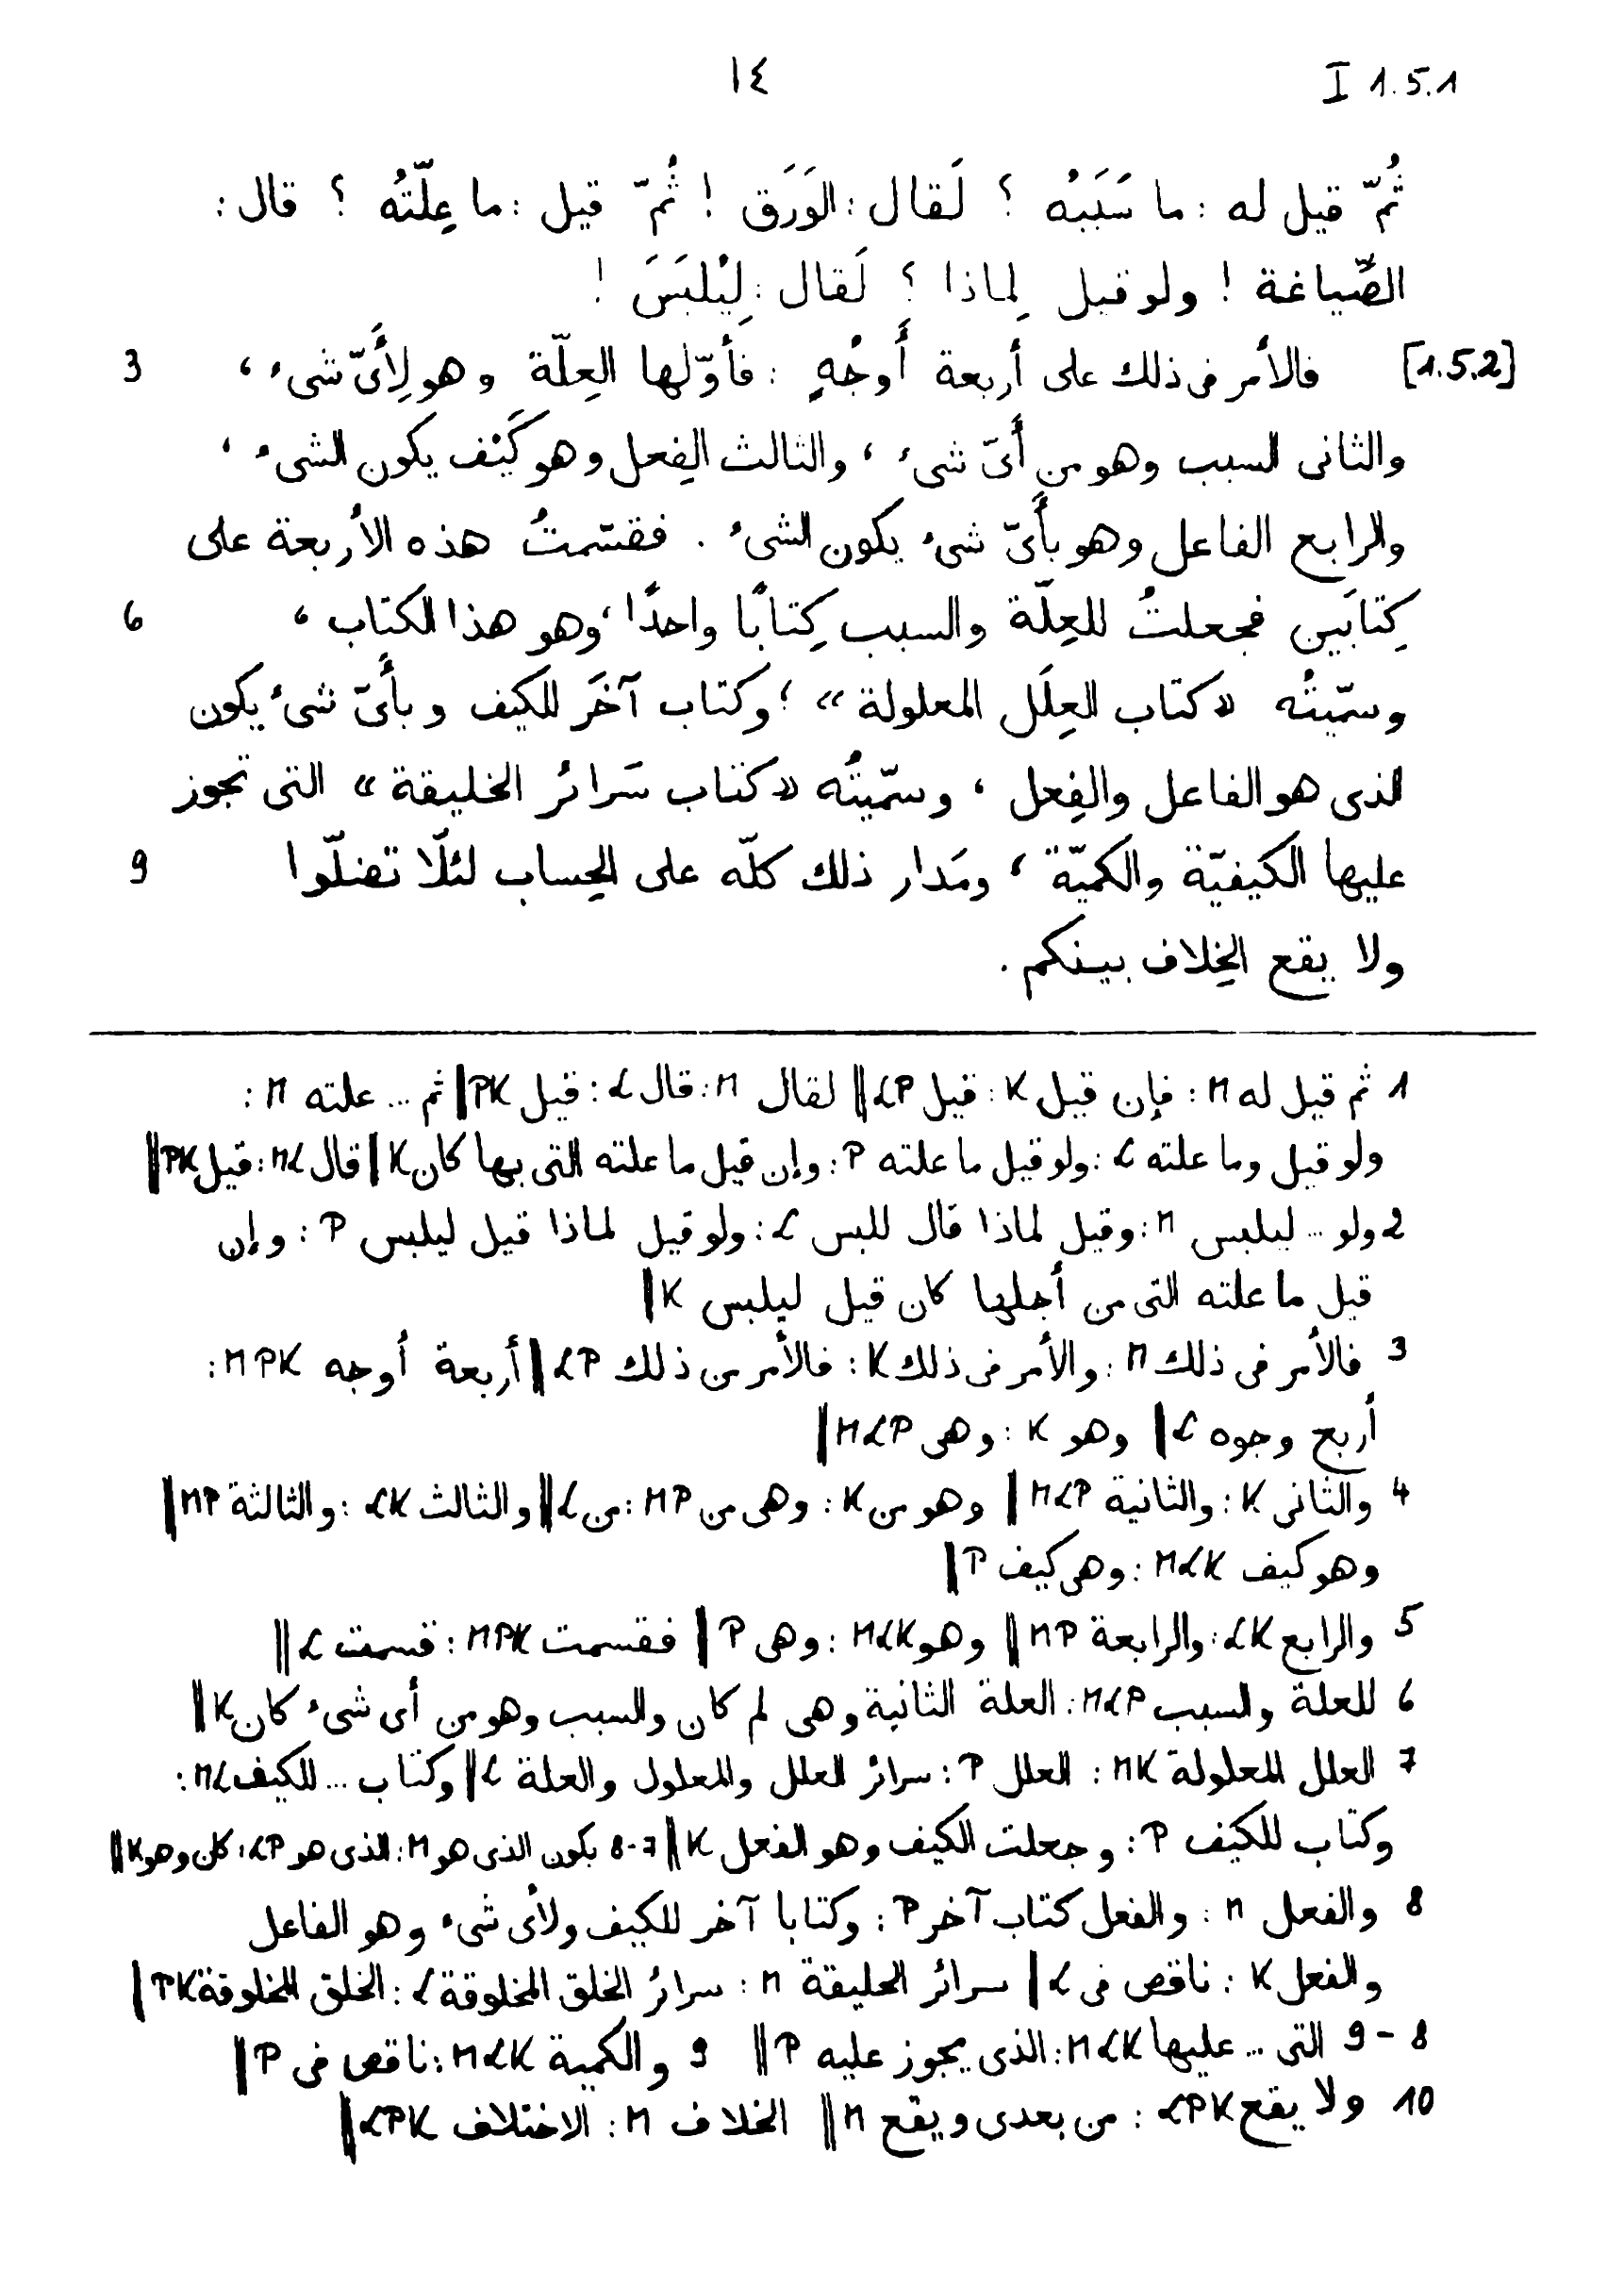 I 1.5.1 ١٤
ثُمّ قيل له : ما سَبَبُه ؟ لَقال : الوَرَق ! ثُمّ قيل : ما عِلّتُه ؟ قال :
الصِّياغة ! ولو قيل لِماذا ؟ لَقال : لِيُلبَسَ !
[1.5.2] فالأمر فى ذلك على أربعة أَوجُهٍ : فأوّلها العِلّة وهو لِأَىّ شىء ، 3
والثانى السبب وهو من أَىّ شىء ، والثالث الفِعل وهو كَيْف يكون الشىء ،
والرابع الفاعل وهو بأَىّ شىء يكون الشىءُ . فقسّمتُ هذه الأربعة على
كِتابَين فجعلتُ للعِلّة والسبب كِتابًا واحدًا ، وهو هذا الكتاب ، 6
وسمّيتُه « كتاب العِلَل المعلولة » ؛ وكتاب آخَر للكيف وبأَىّ شىءُ يكون
الذى هو الفاعل والفِعل ، وسمّيتُه « كتاب سَرائر الخليقة » التى تجوز
عليها الكيفيّة والكميّة ، ومَدار ذلك كلّه على الحِساب لئلّا تضلّوا 9
ولا يقع الخِلاف بينكم .
1 ثم قيل له M : فإن قيل K : قيل LP || لقال M : قال L : قيل PK | ثم ... علته M :
ولو قيل وما علته L : ولو قيل ما علته P : وإن قيل ما علته التى بها كان K | قال ML : قيل PK ||
2 ولو ... ليلبس M : وقيل لماذا قال للبس L : ولو قيل لماذا قيل ليلبس P : وإن
قيل ما علته التى من أجلها كان قيل ليلبس K |
3 فالأمر فى ذلك M : والأمر فى ذلك K : فالأمر من ذلك LP | أربعة أوجه MPK :
أربع وجوه L | وهو K : وهى MLP |
4 والثانى K : والثانية MLP | وهو من K : وهى من MP : من L || والثالث LK : والثالثة MP |
وهو كيف MLK : وهى كيف P |
5 والرابع LK : والرابعة MP || وهو MLK : وهى P | فقسمت MPK : قسمت L ||
6 للعلة والسبب MLP : العلة الثانية وهى لم كان والسبب وهو من أى شىء كان K ||
7 العلل المعلولة MK : العلل P : سرائر العلل والمعلول والعلة L || وكتاب ... للكيف ML :
وكتاب للكيف P : وجعلت الكيف وهو الفعل K || 7-8 يكون الذى هو M : الذى هو LP : كان وهو K ||
8 والفعل M : والفعل كتاب آخر P : وكتابا آخر للكيف ولأى شىء وهو الفاعل
والفعل K : ناقص فى L | سرائر الخليقة M : سرائر الخلق المخلوقة L : الخلق المخلوقة PK |
8-9 التى ... عليها MLK : الذى يجوز عليه P || 9 والكمية MLK : ناقص فى P |
10 ولا يقع LPK : من بعدى ويقع M || الخلاف M : الاختلاف LPK ||